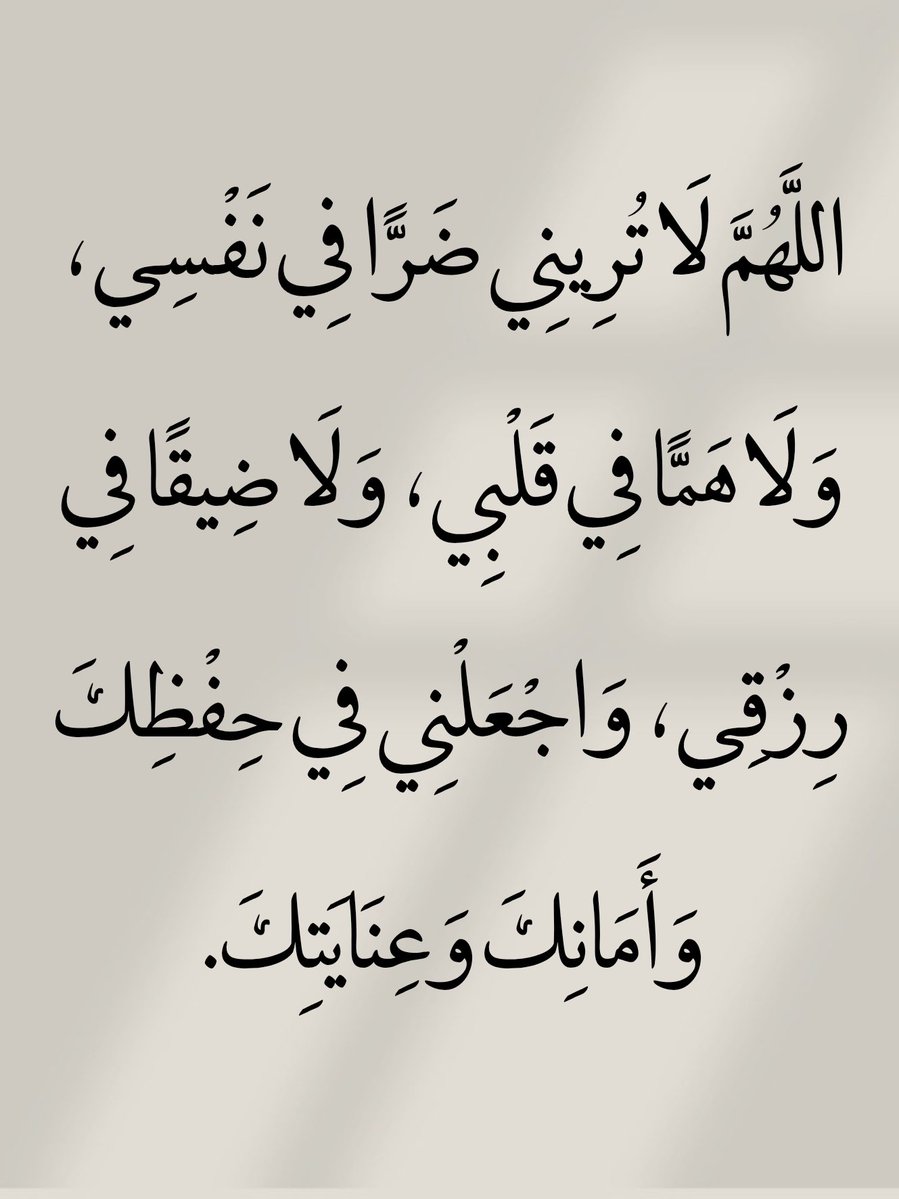 اللَّهُمَّ لَا تُرِينِي ضَرًّا فِي نَفْسِي،
وَلَا هَمًّا فِي قَلْبِي، وَلَا ضِيقًا فِي
رِزْقِي، وَاجْعَلْنِي فِي حِفْظِكَ
وَأَمَانِكَ وَعِنَايَتِكَ.